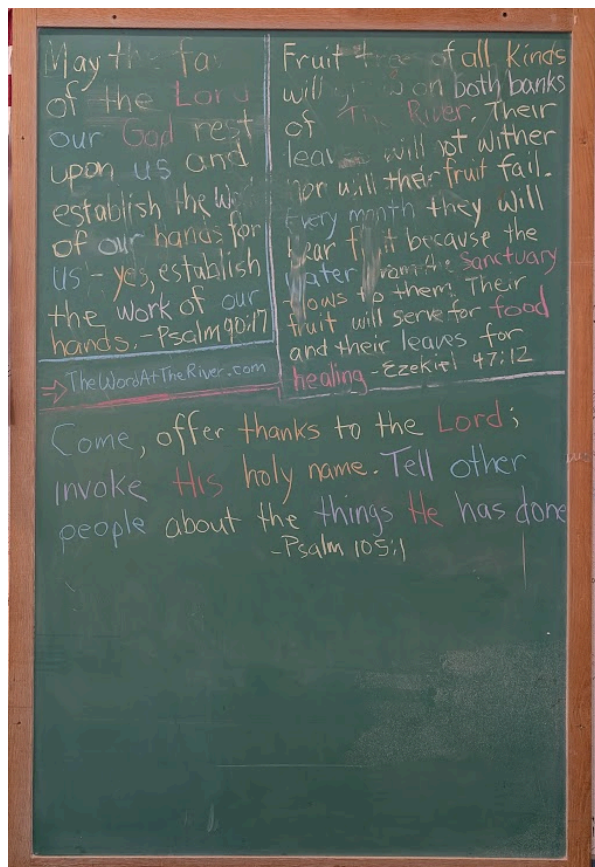 May the fa
of the Lord
our God rest
upon us and
establish the Wo
of our hands for
us - yes, establish
the work of our
hands. -Psalm 90:17
→ TheWordAtTheRiver.com
Fruit t of all Kinds
will on both banks
of The River. Their
leaves will not wither
nor will their fruit fail.
Every month they will
bear fruit because the
water from the Sanctuary
flows to them. Their
fruit will serve for food
and their leaves for
healing -Ezekiel 47:12
Come, offer thanks to the Lord;
invoke His holy name. Tell other
people about the things He has done
-Psalm 105:1